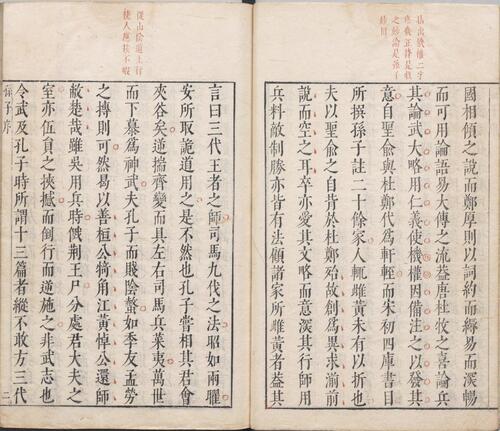 拈出機權二字
國相傾之說而鄭厚則以詞約而縟易而深暢
而可用論語易大傳之流葢唐杜牧之喜論兵
其論武大略用仁義使機權因備注之以發其
意自聖俞與杜鄭代爲軒輊而宋初四庫書目
所撰孫子註二十餘家人輒雌黃未有以折也
夫以聖俞之自肯於杜鄭殆故創爲異求湔前
說而空之耳卒亦愛其文略而意深其行師用
兵料敵制勝亦皆有法顧諸家所雌黃者葢其
從山陰道上行
使人應接不暇
言曰三代王者之師司馬九伐之法昭如兩曜
安所取詭道用之是不然也孔子嘗相其君會
夾谷矣逆揣齊變而具左右司馬兵萊夷萬世
而下慕爲神武夫孔子而賤陰螫如季友孟勞
之摶則可然曷以善桓公犄角江黃悼公還師
敝楚哉雖吳用兵時俄荆王尸分處君大夫之
室亦伍員之挾憾而倒行而逆施之非武志也
令武及孔子時所謂十三篇者縱不敢方三代
孫子序
二